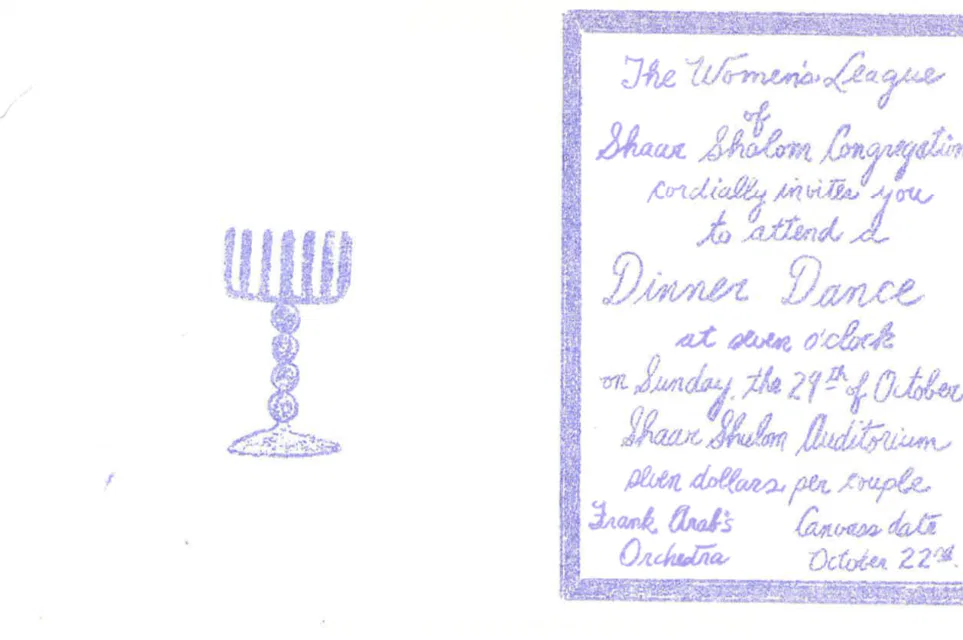 The Women's League
of
Shaar Shalom Congregation
cordially invites you
to attend a
Dinner Dance
at seven o'clock
on Sunday, the 29th of October
Shaar Shalom Auditorium
seven dollars per couple
Frank Arab's Canvass date
Orchestra October 22nd.